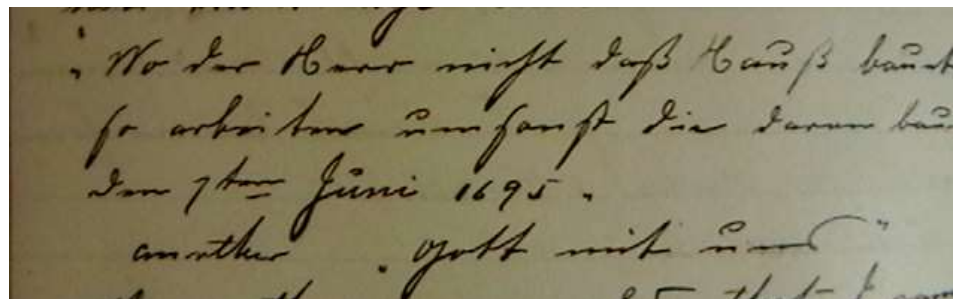 „Wo der Herr nicht daß Hauß baut
so arbeiten umsonst die daran bau
den 7ten Juni 1695.
another „Gott mit uns"